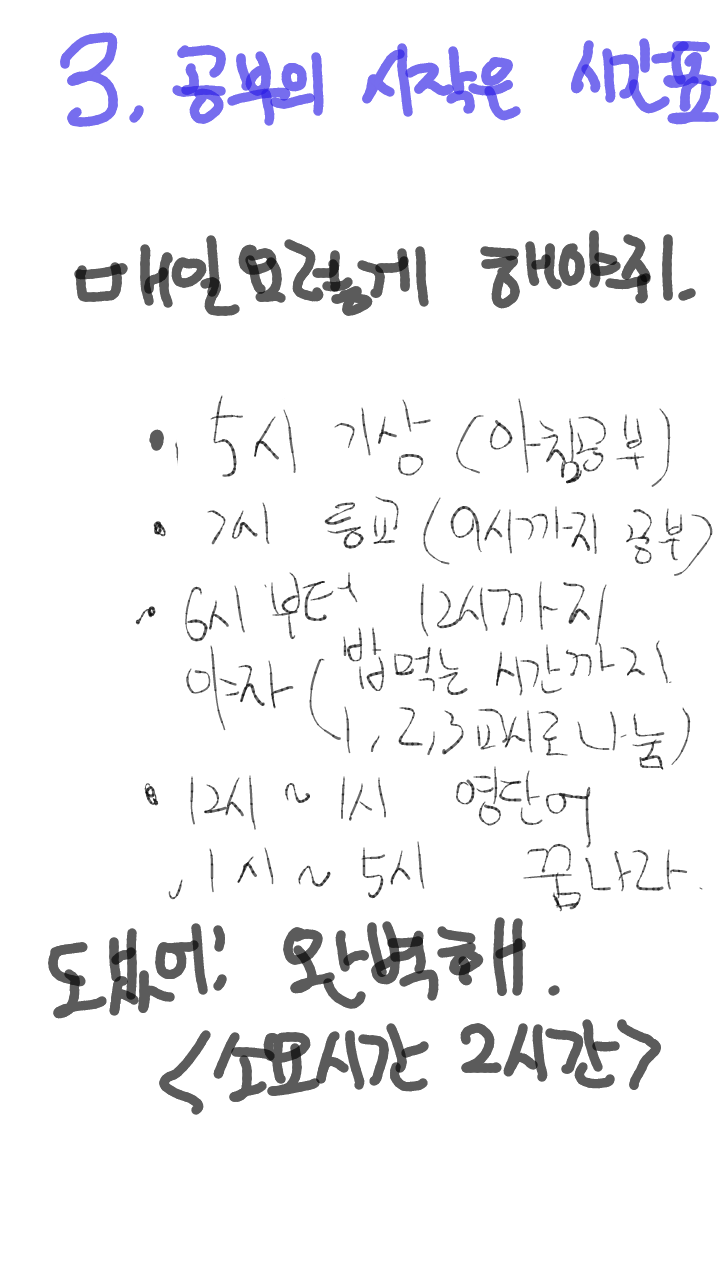 3. 공부의 시작은 시간표
매일 요렇게 해야쥐.
• 5시 기상 (아침공부)
• 7시 등교 (9시까지 공부)
• 6시부터 12시까지
야자 (밥먹는 시간까지
1, 2, 3교시로 나눔)
• 12시 ~ 1시 영단어
, 1시 ~ 5시 꿈나라.
됐어! 완벽해.
<소요시간 2시간>